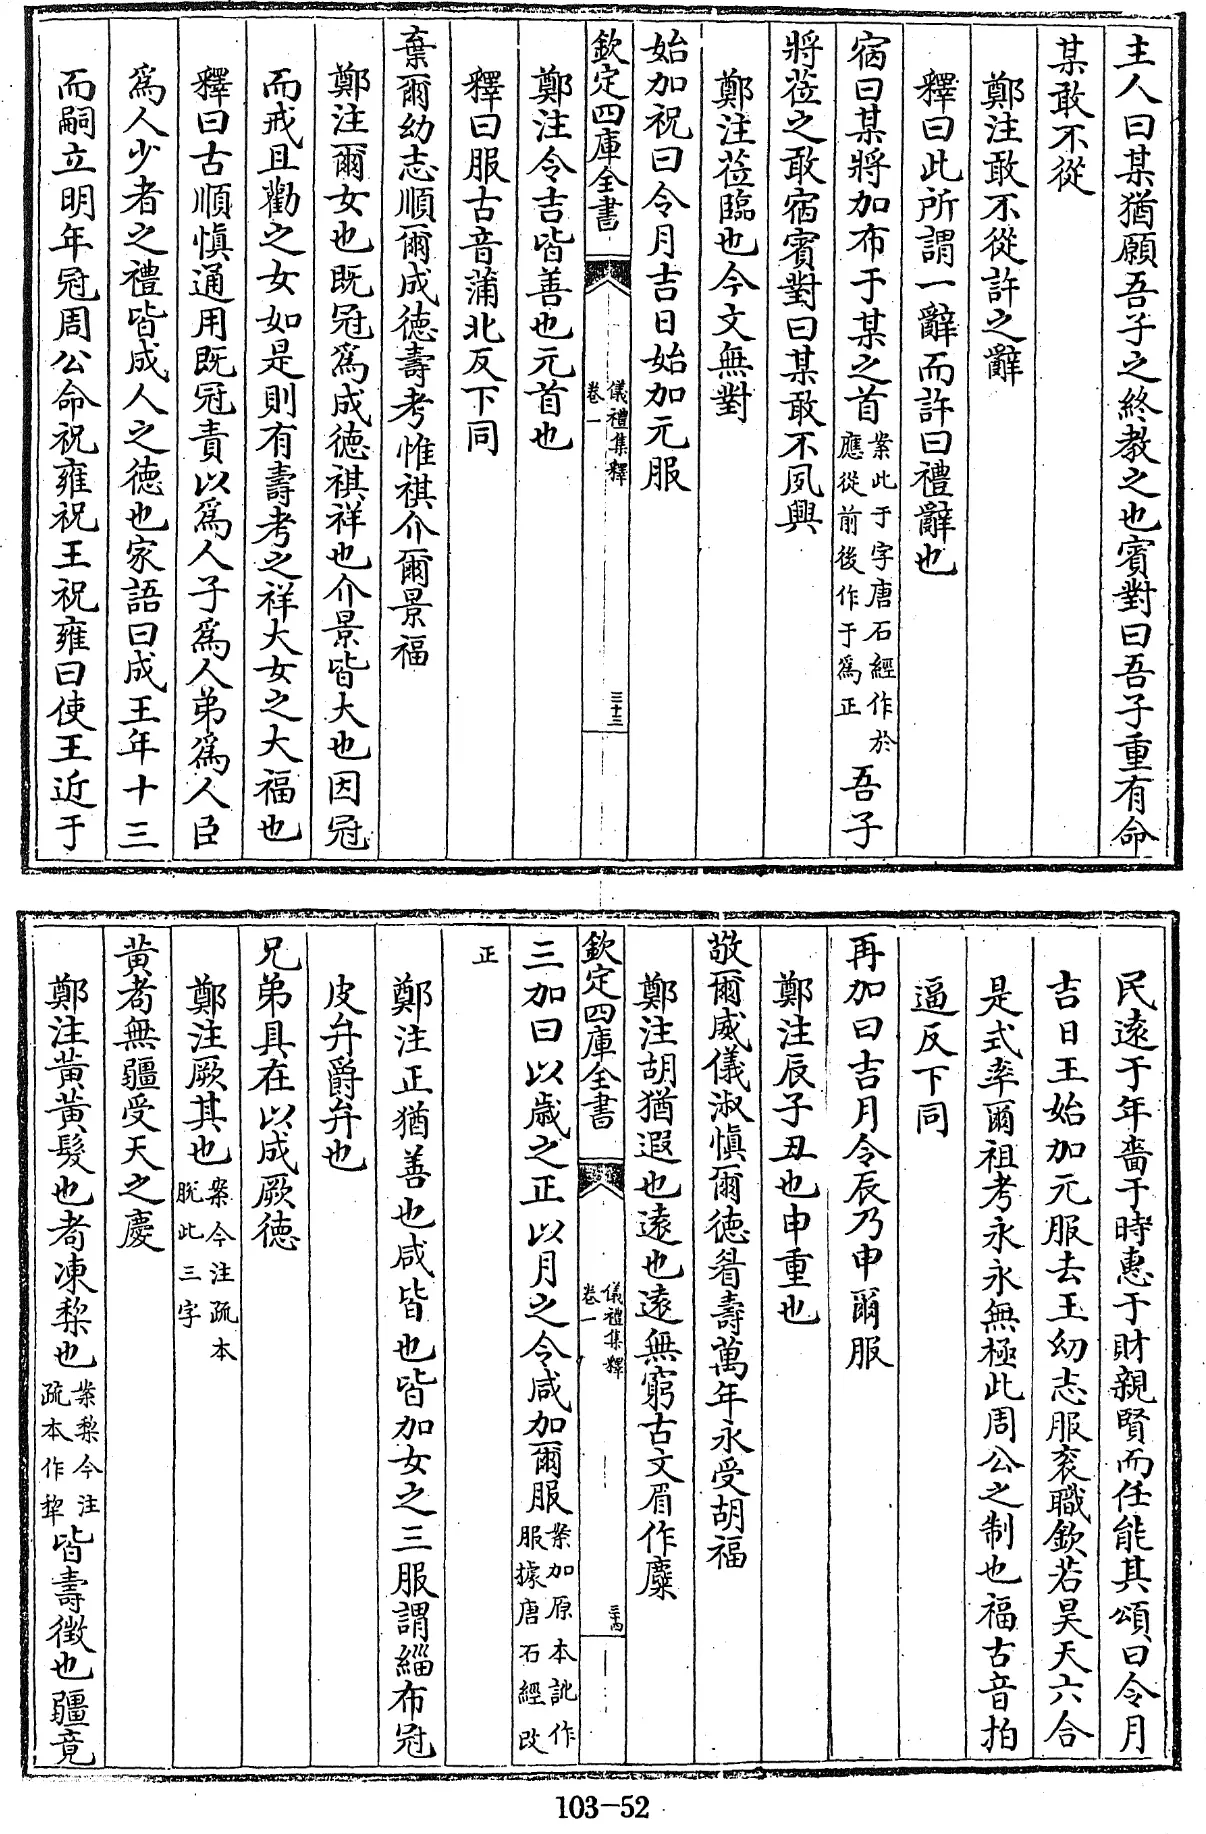 主人曰某猶願吾子之終教之也賓對曰吾子重有命
某敢不從
鄭注敢不從許之辭
釋曰此所謂一辭而許曰禮辭也
宿曰某將加布于某之首案此于字唐石經作於應從前後作于爲正吾子
將莅之敢宿賓對曰某敢不夙興
鄭注莅臨也今文無對
始加祝曰令月吉日始加元服
欽定四庫全書
儀禮集釋
卷一
三十三
鄭注令吉皆善也元首也
釋曰服古音蒲北反下同
棄爾幼志順爾成德壽考惟祺介爾景福
鄭注爾女也既冠爲成德祺祥也介景皆大也因冠
而戒且勸之女如是則有壽考之祥大女之大福也
釋曰古順慎通用既冠責以爲人子爲人弟爲人臣
爲人少者之禮皆成人之德也家語曰成王年十三
而嗣立明年冠周公命祝雍祝王祝雍曰使王近于
民遠于年嗇于時惠于財親賢而任能其頌曰令月
吉日王始加元服去王幼志服衮職欽若昊天六合
是式率爾祖考永永無極此周公之制也福古音拍
逼反下同
再加曰吉月令辰乃申爾服
鄭注辰子丑也申重也
敬爾威儀淑慎爾德眉壽萬年永受胡福
鄭注胡猶遐也遠也遠無窮古文眉作麋
欽定四庫全書
儀禮集釋
卷一
三十四
三加曰以歲之正以月之令咸加爾服案加原本訛作服據唐石經改
正
鄭注正猶善也咸皆也皆加女之三服謂緇布冠
皮弁爵弁也
兄弟具在以成厥德
鄭注厥其也案今注疏本脫此三字
黃耇無疆受天之慶
鄭注黃黃髮也耇凍棃也案棃今注疏本作犂皆壽徵也疆竟
103-52